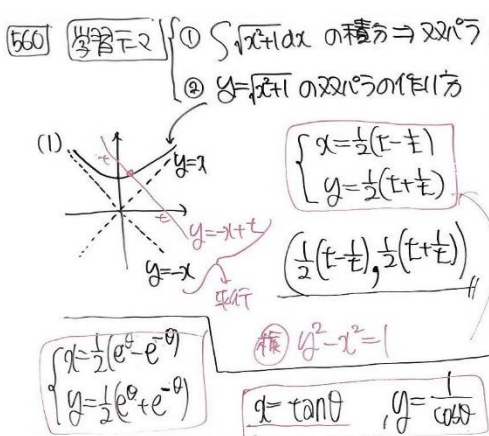 560 学習テーマ ① ∫√(x²+1)dx の積分⇒パラ
② y=√(x²+1) のパラの作り方
(1)
t
y=x
t
y=-x+t
y=-x
平行
{ x=½(t-1/t)
y=½(t+1/t)
(½(t-1/t), ½(t+1/t))
y²-x²=1
{ x=½(e^θ-e^-θ)
y=½(e^θ+e^-θ)
x=tanθ , y=1/cosθ